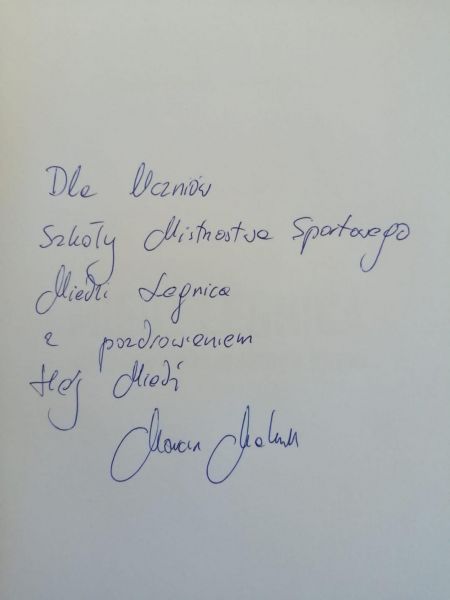 Dla Uczniów
Szkoły Mistrzostwa Sportowego
Miedzi Legnica
z pozdrowieniem
Hej Miedź
Marcin